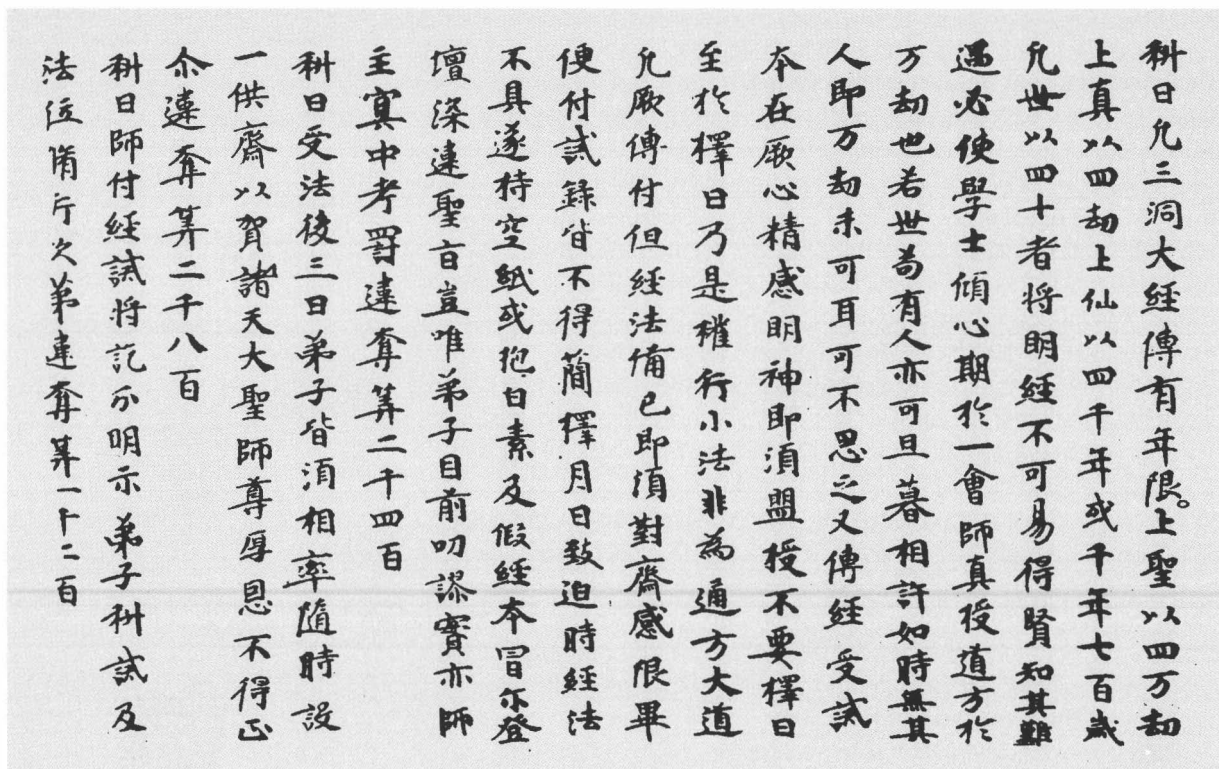 科曰凢三洞大經傳有年限。上聖以四万劫
上真以四劫上仙以四千年或千年七百歲
凢世以四十者将明經不可易得賢知其難
遇必使學士傾心期於一會師真授道方於
万劫也若世苟有人亦可旦暮相許如時無其
人即万劫未可耳可不思之又傳經受誡
夲在厥心精感明神即須盟授不要擇日
至於擇日乃是權行小法非為通方大道
凢厥傳付但經法備已即須對齋感限畢
便付誡録皆不得簡擇月日致迫時經法
不具遂持空紙或抱白素及假經夲冒尒登
壇深違聖旨豈唯弟子目前叨謬實亦師
主冥中考罰違奪筭二千四百
科曰受法後三日弟子皆須相率隨時設
一供齋以賀諸天大聖師尊厚恩不得㱏
尒違奪筭二千八百
科曰師付經誡将訖尒明示弟子科誡及
法位階斤次第違奪筭一千二百